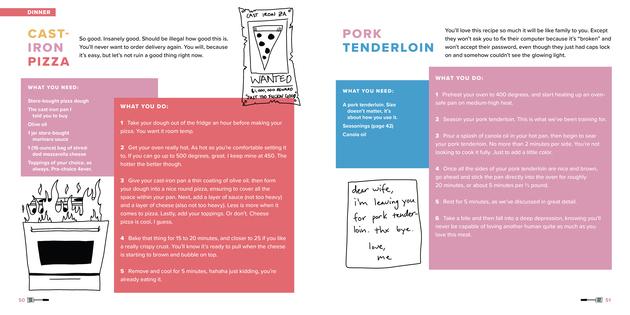 DINNER
CAST-
IRON
PIZZA
So good. Insanely good. Should be illegal how good this is.
You'll never want to order delivery again. You will, because
it's easy, but let's not ruin a good thing right now.
CAST IRON PIZZA
WANTED
$1,000,000 REWARD
WHAT YOU NEED:
Store-bought pizza dough
The cast-iron pan I
told you to buy
Olive oil
1 jar store-bought
marinara sauce
1 (16 ounce) bag of shred-
ded mozzarella cheese
Toppings of your choice, as
always. Pro-choice 4ever.
WHAT YOU DO:
1 Take your dough out of the fridge an hour before making your
pizza. You want it room temp.
2 Get your oven really hot. As hot as you're comfortable setting it
to. If you can go up to 500 degrees, great. I keep mine at 450. The
hotter the better though.
3 Give your cast-iron pan a thin coating of olive oil, then form
your dough into a nice round pizza, ensuring to cover all the
space within your pan. Next, add a layer of sauce (not too heavy)
and a layer of cheese (also not too heavy). Less is more when it
comes to pizza. Lastly, add your toppings. Or don't. Cheese
pizza is cool, I guess.
4 Bake that thing for 15 to 20 minutes, and closer to 25 if you like
a really crispy crust. You'll know it's ready to pull when the cheese
is starting to brown and bubble on top.
5 Remove and cool for 5 minutes, hahaha just kidding, you're
already eating it.
50
PORK
TENDERLOIN
You'll love this recipe so much it will be like family to you. Except
they won't ask you to fix their computer because it's "broken" and
won't accept their password, even though they just had caps lock
on and somehow couldn't see the glowing light.
WHAT YOU NEED:
A pork tenderloin. Size
doesn't matter, it's
about how you use it.
Seasonings (page 42)
Canola oil
WHAT YOU DO:
1 Preheat your oven to 400 degrees, and start heating up an oven-
safe pan on medium-high heat.
2 Season your pork tenderloin. This is what we've been training for.
3 Pour a splash of canola oil in your hot pan, then begin to sear
your pork tenderloin. No more than 2 minutes per side. You're not
looking to cook it fully. Just to add a little color.
4 Once all the sides of your pork tenderloin are nice and brown,
go ahead and stick the pan directly into the oven for roughly
20 minutes, or about 5 minutes per ½ pound.
5 Rest for 5 minutes, as we've discussed in great detail.
6 Take a bite and then fall into a deep depression, knowing you'll
never be capable of loving another human quite as much as you
love this meat.
dear wife,
i'm leaving you
for pork tender-
loin. thx bye.
love,
me
51